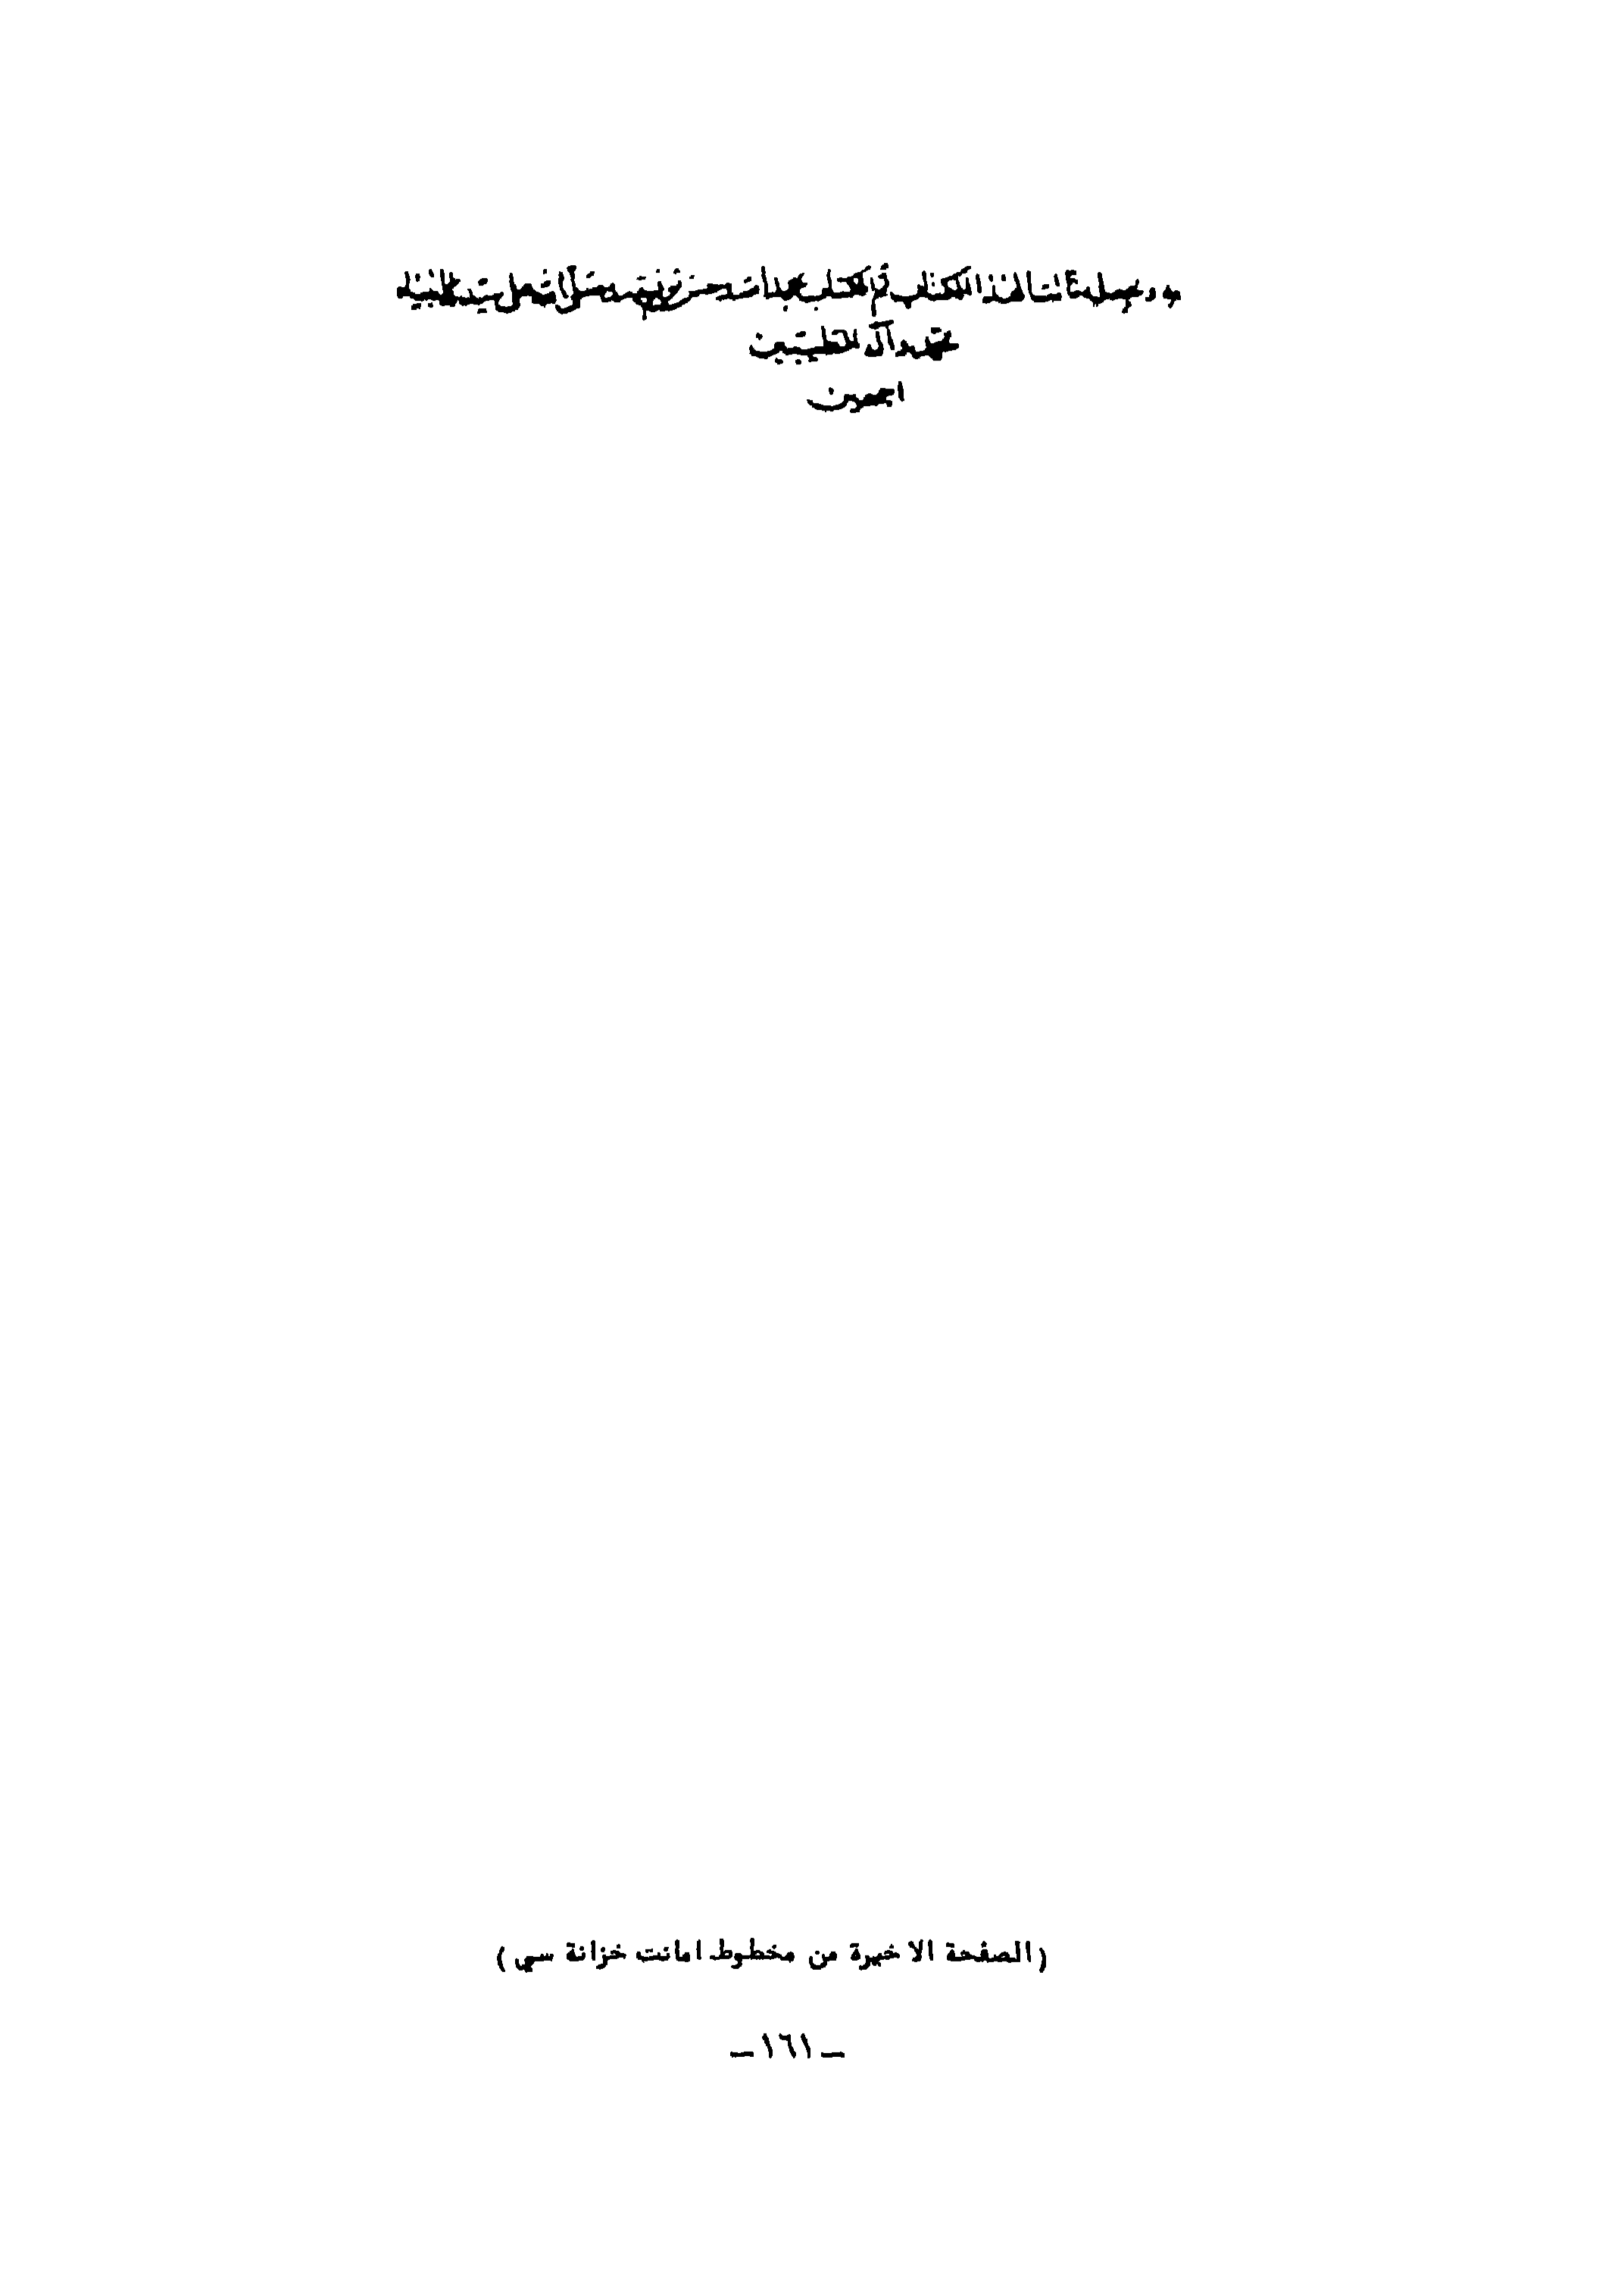 لهذا الكتاب تم الكتاب بحمد الله وحسن توفيقه وصلى الله على سيد
محمد وآله الطيبين
اجمعين
(الصفحة الاخيرة من مخطوط امانت خزانة سي)
ـ ١٦١ ـ